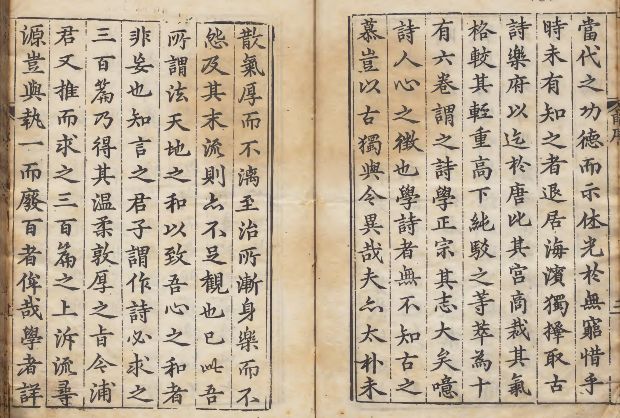 當代之功德而示休光於無窮惜乎
時未有知之者退居海濱獨擇取古
詩樂府以迄於唐比其宮商裁其氣
格較其輕重高下純駁之等萃為十
有六卷謂之詩學正宗其志大矣噫
詩人心之徵也學詩者無不知古之
慕豈以古獨與今異哉夫亦太朴未
散氣厚而不漓至治所漸身樂而不
怨及其末流則亦不足觀也已此吾
所謂法天地之和以致吾心之和者
非妄也知言之君子謂作詩必求之
三百篇乃得其溫柔敦厚之旨今浦
君又推而求之三百篇之上泝流尋
源豈與執一而廢百者侔哉學者詳